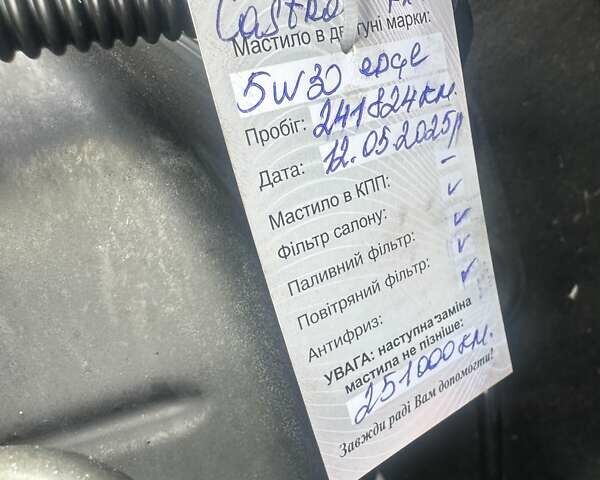 Мастило в двигуні марки:
5W30 edge
Пробіг: 241824 км.
Дата: 12.05.2025р
Мастило в КПП: –
Фільтр салону: ✓
Паливний фільтр: ✓
Повітряний фільтр: ✓
Антифриз: ✓
УВАГА: наступна заміна
мастила не пізніше:
251000 км.
Завжди раді Вам допомогти!